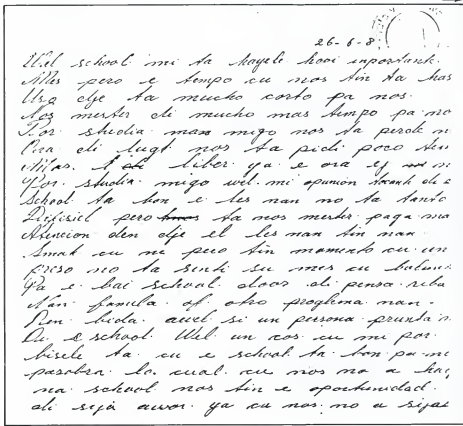 26-6-8
Wel school mi ta hayele hooi inportank
Alles pero e tempo cu nos tin ta has
Usa dje ta mucho corto pa nos.
Nos mester di mucho mas tempo pa no
Por studia man migo nos ta perde n
Ora di lugt nos ta pidi poco
Mas. liber ya e ora ey
Por studia migo wel. mi opinion tocante di e
School ta bon e les nan no ta tanto
Dificiel pero ta nos mester paga
Atencion den dje el les nan tin nan
Smak cu ne pero tin momento cu un
preso no ta senti su mes cu
Pa e bai school door di pensa riba
Nan famila of otro proglema nan.
Den bida. awel si un persona prunta
Di e school. Wel un cos cu mi por
bisele ta cu e school ta bon pa mi
parobra lo cual cu nos no a hay
na school nos tin e oportunidad.
di sija awor ya cu nos no a sijas